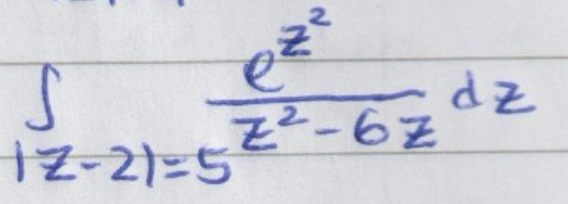 ∫_{|z-2|=5} \frac{e^{z^2}}{z^2-6z} dz